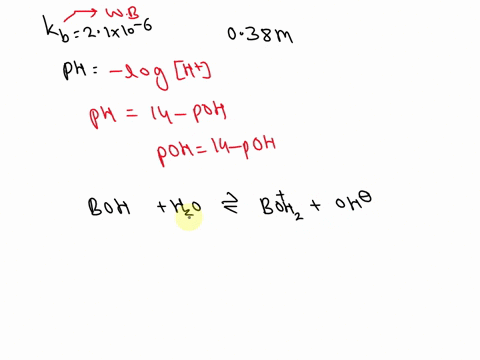 W.B
kb = 2.1x10^-6
0.38m
pH = -log [H+]
pH = 14 - pOH
pOH = 14 - pOH
BOH + H2O ⇌ BOH2+ + OH⊖